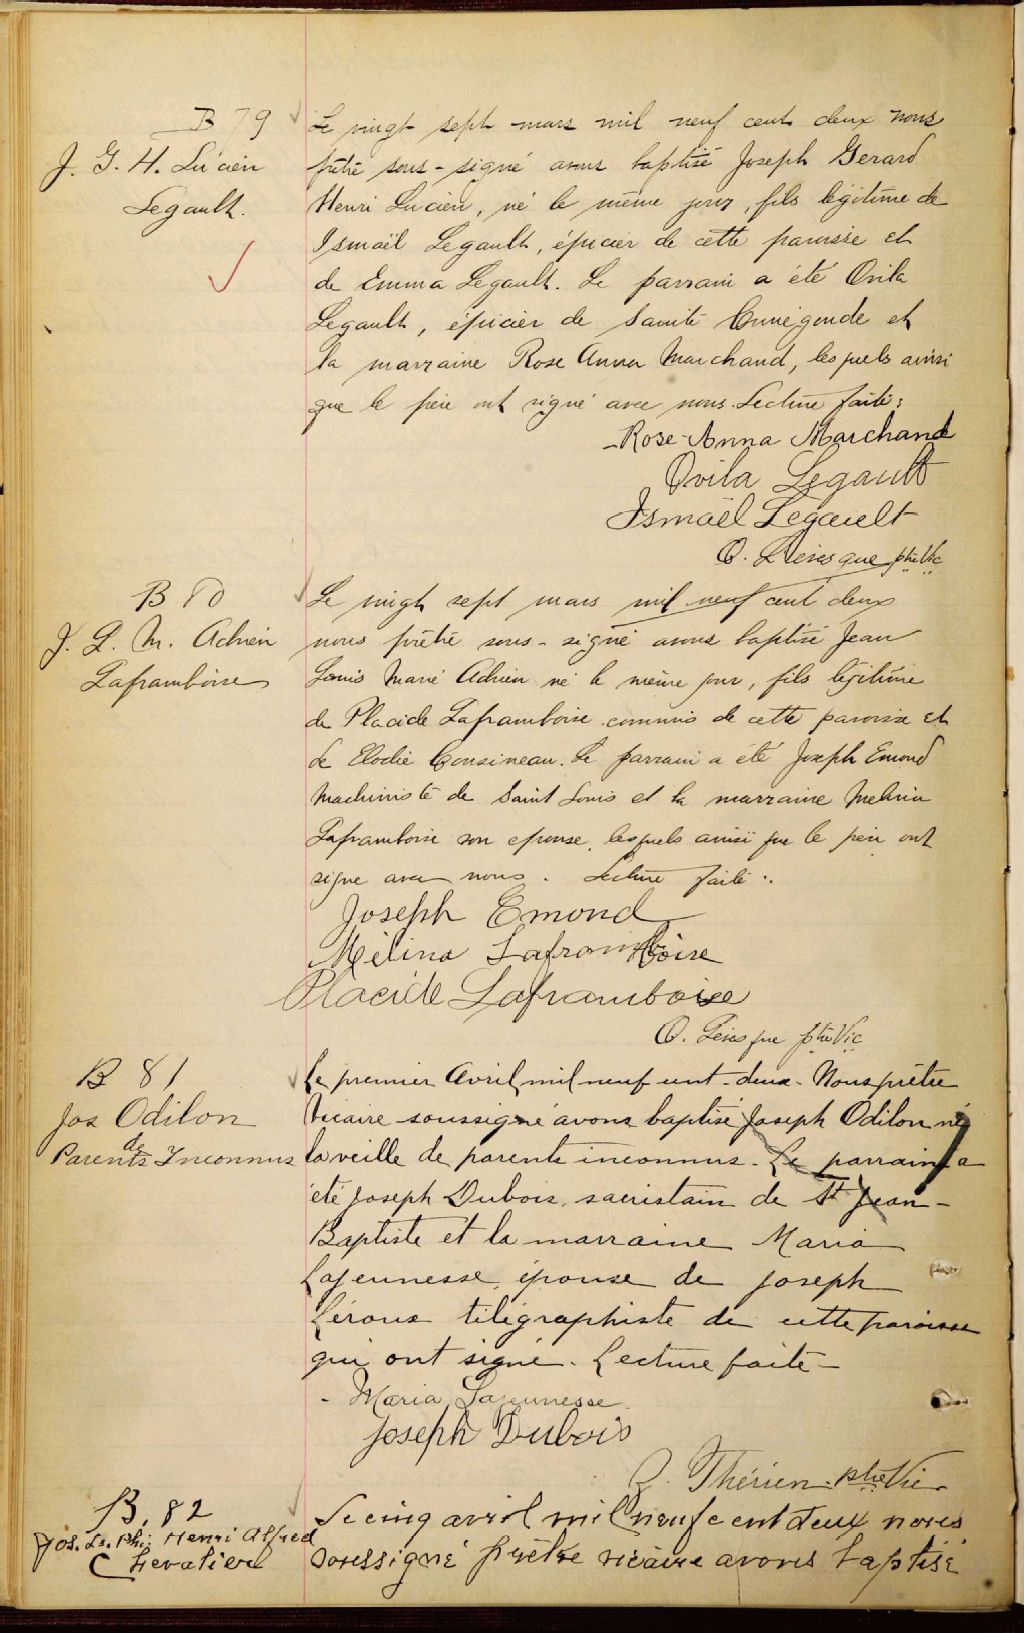 B 79
J. G. H. Lucien
Legault.
Le vingt sept mars mil neuf cent deux nous
prêtre sous-signé avons baptisé Joseph Gerard
Henri Lucien, né le même jour, fils légitime de
Ismaël Legault, épicier de cette paroisse et
de Emma Legault. Le parrain a été Ovila
Legault, épicier de Sainte Cunégonde et
la marraine Rose Anna Marchand, lesquels ainsi
que le père ont signé avec nous. Lecture faite.
Rose-Anna Marchand
Ovila Legault
Ismaël Legault
O. Lévesque ptre Vic
B 80
J. L. M. Adrien
Laframboise
Le vingt sept mars mil neuf cent deux
nous prêtre sous-signé avons baptisé Jean
Louis Marie Adrien né le même jour, fils légitime
de Placide Laframboise commis de cette paroisse et
de Elodie Cousineau. Le parrain a été Joseph Emond
Machiniste de Saint Louis et la marraine Melina
Laframboise son epouse, lesquels ainsi que le père ont
signé avec nous. Lecture faite.
Joseph Emond
Mélina Laframboise
Placide Laframboise
O. Lévesque ptre Vic
B 81
Jos Odilon
de
Parents Inconnus
Le premier Avril mil neuf cent-deux- Nous prêtre
Vicaire soussigné avons baptisé Joseph Odilon né
la veille de parents inconnus- Le parrain a
été Joseph Dubois, sacristain de St Jean-
Baptiste et la marraine Maria
Lajeunesse, épouse de Joseph
Léroux télégraphiste de cette paroisse
qui ont signé. Lecture faite-
Maria Lajeunesse
Joseph Dubois
Thérien ptre Vic
B. 82
Jos. Ls. Phi. Henri Alfred
Chevalier
Le cinq avril mil neuf cent deux nous
soussigné prêtre vicaire avons baptisé